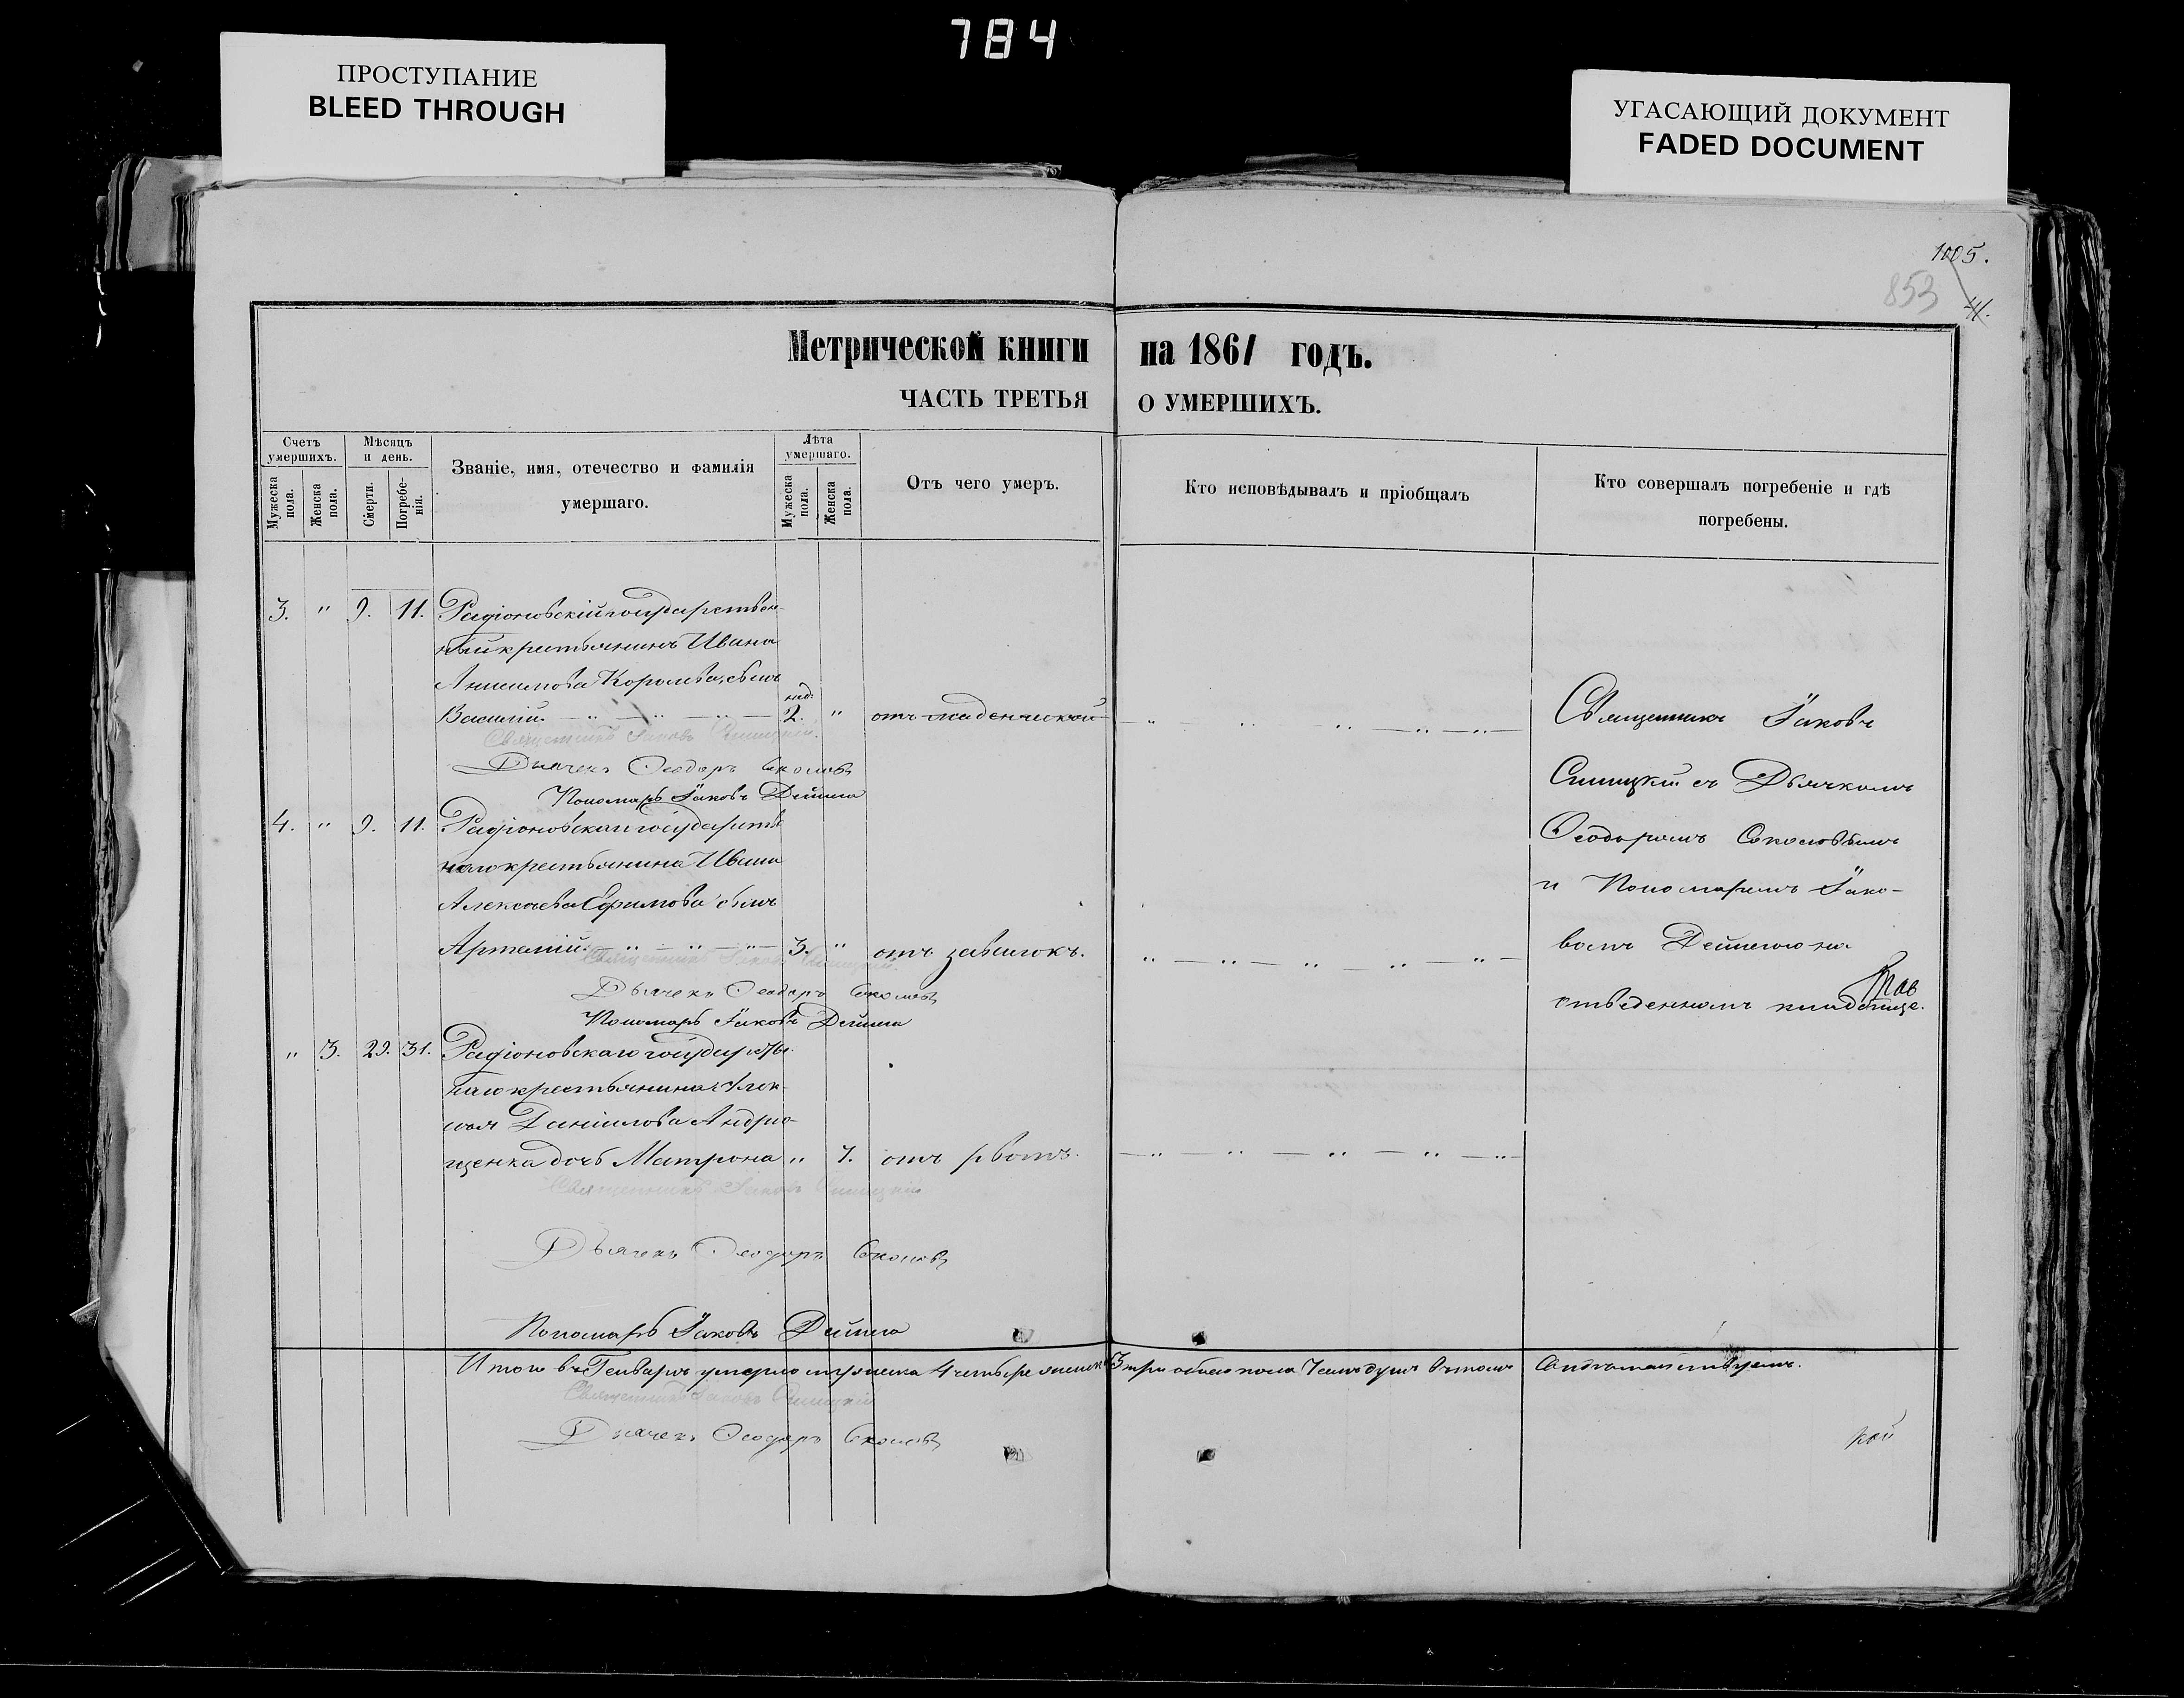 784
ПРОСТУПАНИЕ
BLEED THROUGH
УГАСАЮЩИЙ ДОКУМЕНТ
FADED DOCUMENT
1005.
853
Метрической книги на 1861 годъ.
ЧАСТЬ ТРЕТЬЯ О УМЕРШИХЪ.
Счетъ умершихъ.
Мужеска пола.
Женска пола.
Мѣсяцъ и день.
Смерти.
Погребенія.
Званіе, имя, отечество и фамилія умершаго.
Лѣта умершаго.
Мужеска пола.
Женска пола.
Отъ чего умеръ.
Кто исповѣдывалъ и пріобщалъ
Кто совершалъ погребеніе и гдѣ погребены.
3. " 9. 11. Радіоновскій государствен-
ный крестьянинъ Ивана
Анисимова Королева, сынъ
Василій. 2. нед: " отъ младенческой
Священникъ Іаковъ
Дьячекъ Ѳеодоръ Соколовъ
Пономарь Іаковъ Дейнега
4. " 9. 11. Радіоновскаго государств
наго крестьянина Ивана
Алексѣева Ефимова сынъ
Артемій. 3. " отъ
Священникъ Іаковъ
Дьячекъ Ѳеодоръ Соколовъ
Пономарь Іаковъ Дейнега
" 3. 29. 31. Радіоновскаго государств.
наго крестьянина Алек-
Даніилова Андрю-
щенка дочь Матрона " 7. отъ рвоты.
Священникъ Іаковъ
Дьячекъ Ѳеодоръ Соколовъ
Пономарь Іаковъ Дейнега
Священникъ Іаковъ
съ Дьячкомъ
Ѳеодоромъ Соколовымъ
и Пономаремъ Іако-
вомъ на
отведенномъ кладбище.
Итого въ Генварѣ умерло мужеска 4 четыре женска 3 три обоего пола 7 семь душъ въ томъ
Священникъ Іаковъ
Дьячекъ Ѳеодоръ Соколовъ